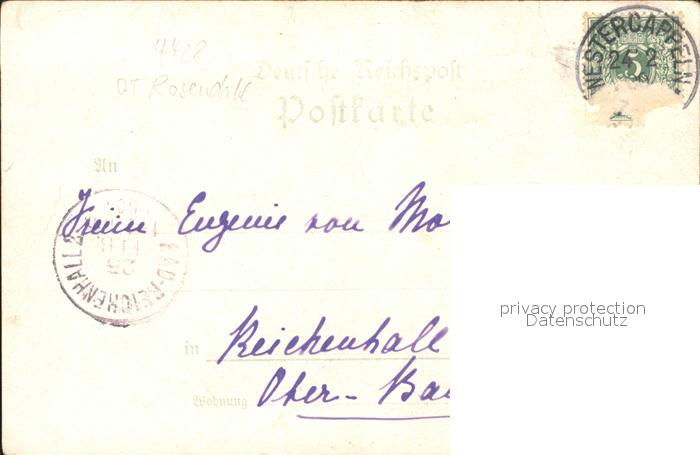 4428
OT Rosendahl
Deutsche Reichspost
Postkarte
WESTERCAPPELN
24 2
5
An
Freiin Eugenie von Mo
BAD-REICHENHALL 2
25
FEB
privacy protection
Datenschutz
in Reichenhall
Wohnung Ober-Ba